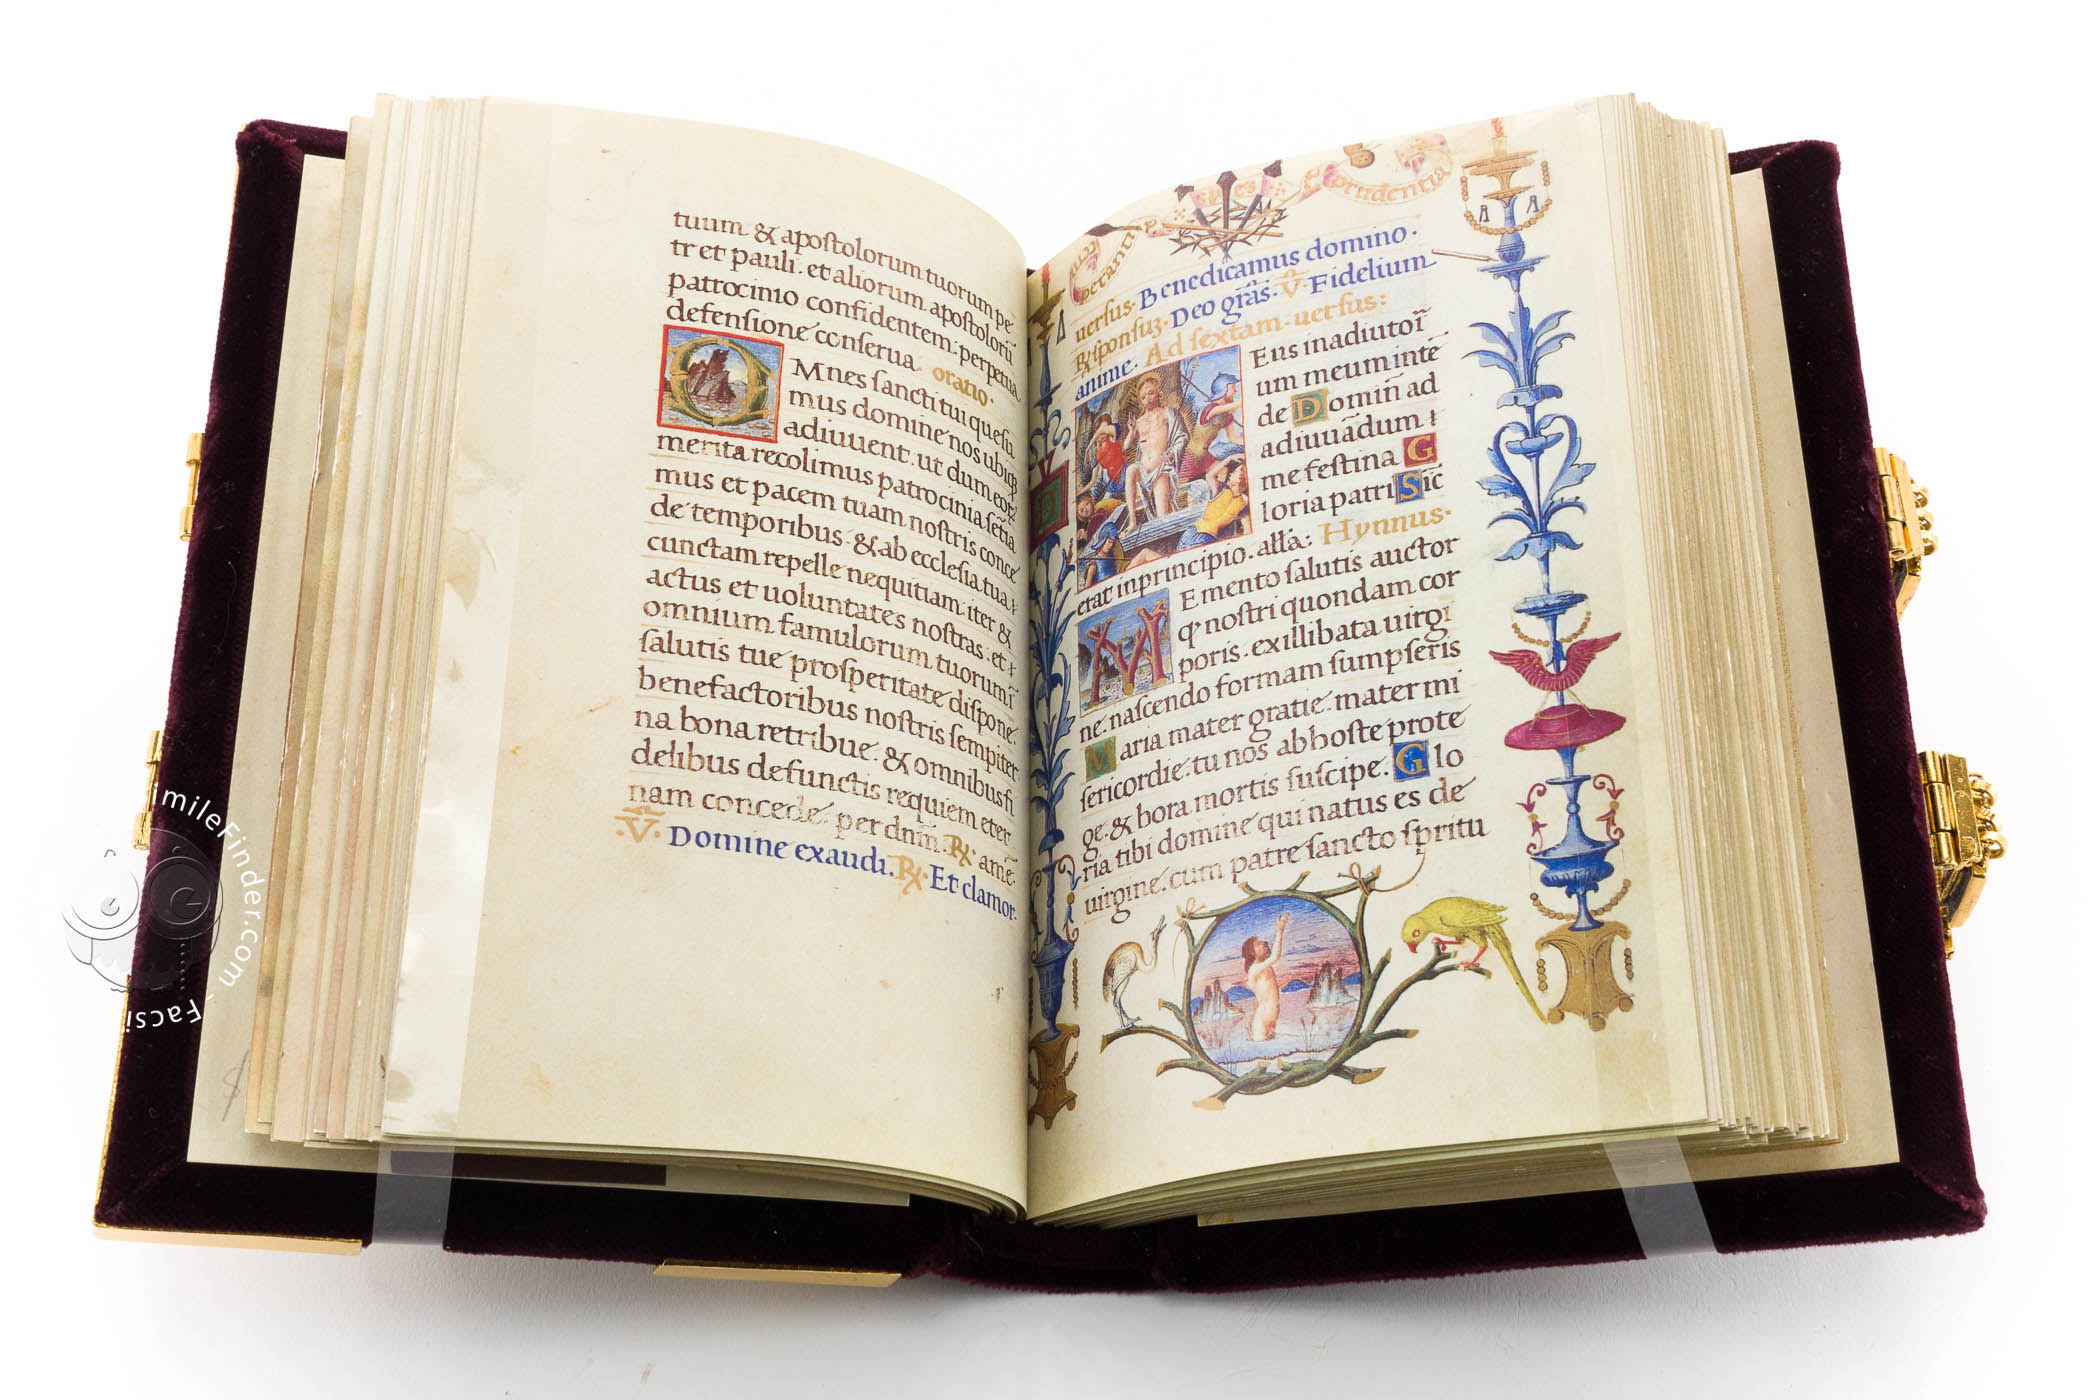 tuum & apostolorum tuorum pe
tr et pauli. et aliorum apostoloru̅
patrocinio confidentem: perpetua
defensione conserua. oratio.
OMnes sancti tui quesu
mus domine nos ubiqȝ
adiuuent. ut dum eoꝝ
merita recolimus patrocinia se̅tia
mus et pacem tuam nostris conce
de temporibus. & ab ecclesia tua
cunctam repelle nequitiam. iter &
actus et uoluntates nostras. et
omnium famulorum tuorum. i̅
salutis tue prosperitate dispone.
benefactoribus nostris sempiter
na bona retribue. & omnibus fi
delibus defunctis requiem eter
nam concede. per dnm̅. ℞ ame̅.
℣. Domine exaudi. ℞ Et clamor.
spes
prudentia
uersus. Benedicamus domino.
℞sponsuȝ. Deo gr̅as. ℣ Fidelium
anime. Ad sextam. uersus:
Eus in adiutori̅
um meum inte̅
de Domin̅ ad
adiuua̅dum
me festina G
loria patri Sic
erat in principio. all̅a: Hynnus.
MEmento salutis auctor
qȝ nostri quondam cor
poris. ex illibata uirgi
ne. nascendo formam sumpseris
Maria mater gratie. mater mi
sericordie. tu nos ab hoste prote
ge. & hora mortis suscipe. Glo
ria tibi domine qui natus es de
uirgine. cum patre sancto spritu
FacsimileFinder.com